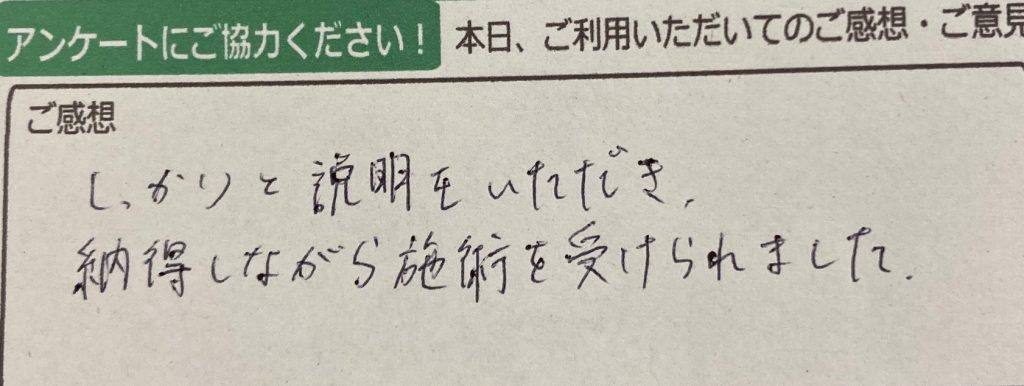 アンケートにご協力ください！ 本日、ご利用いただいてのご感想・ご意見
ご感想
しっかりと説明をいただき、
納得しながら施術を受けられました。